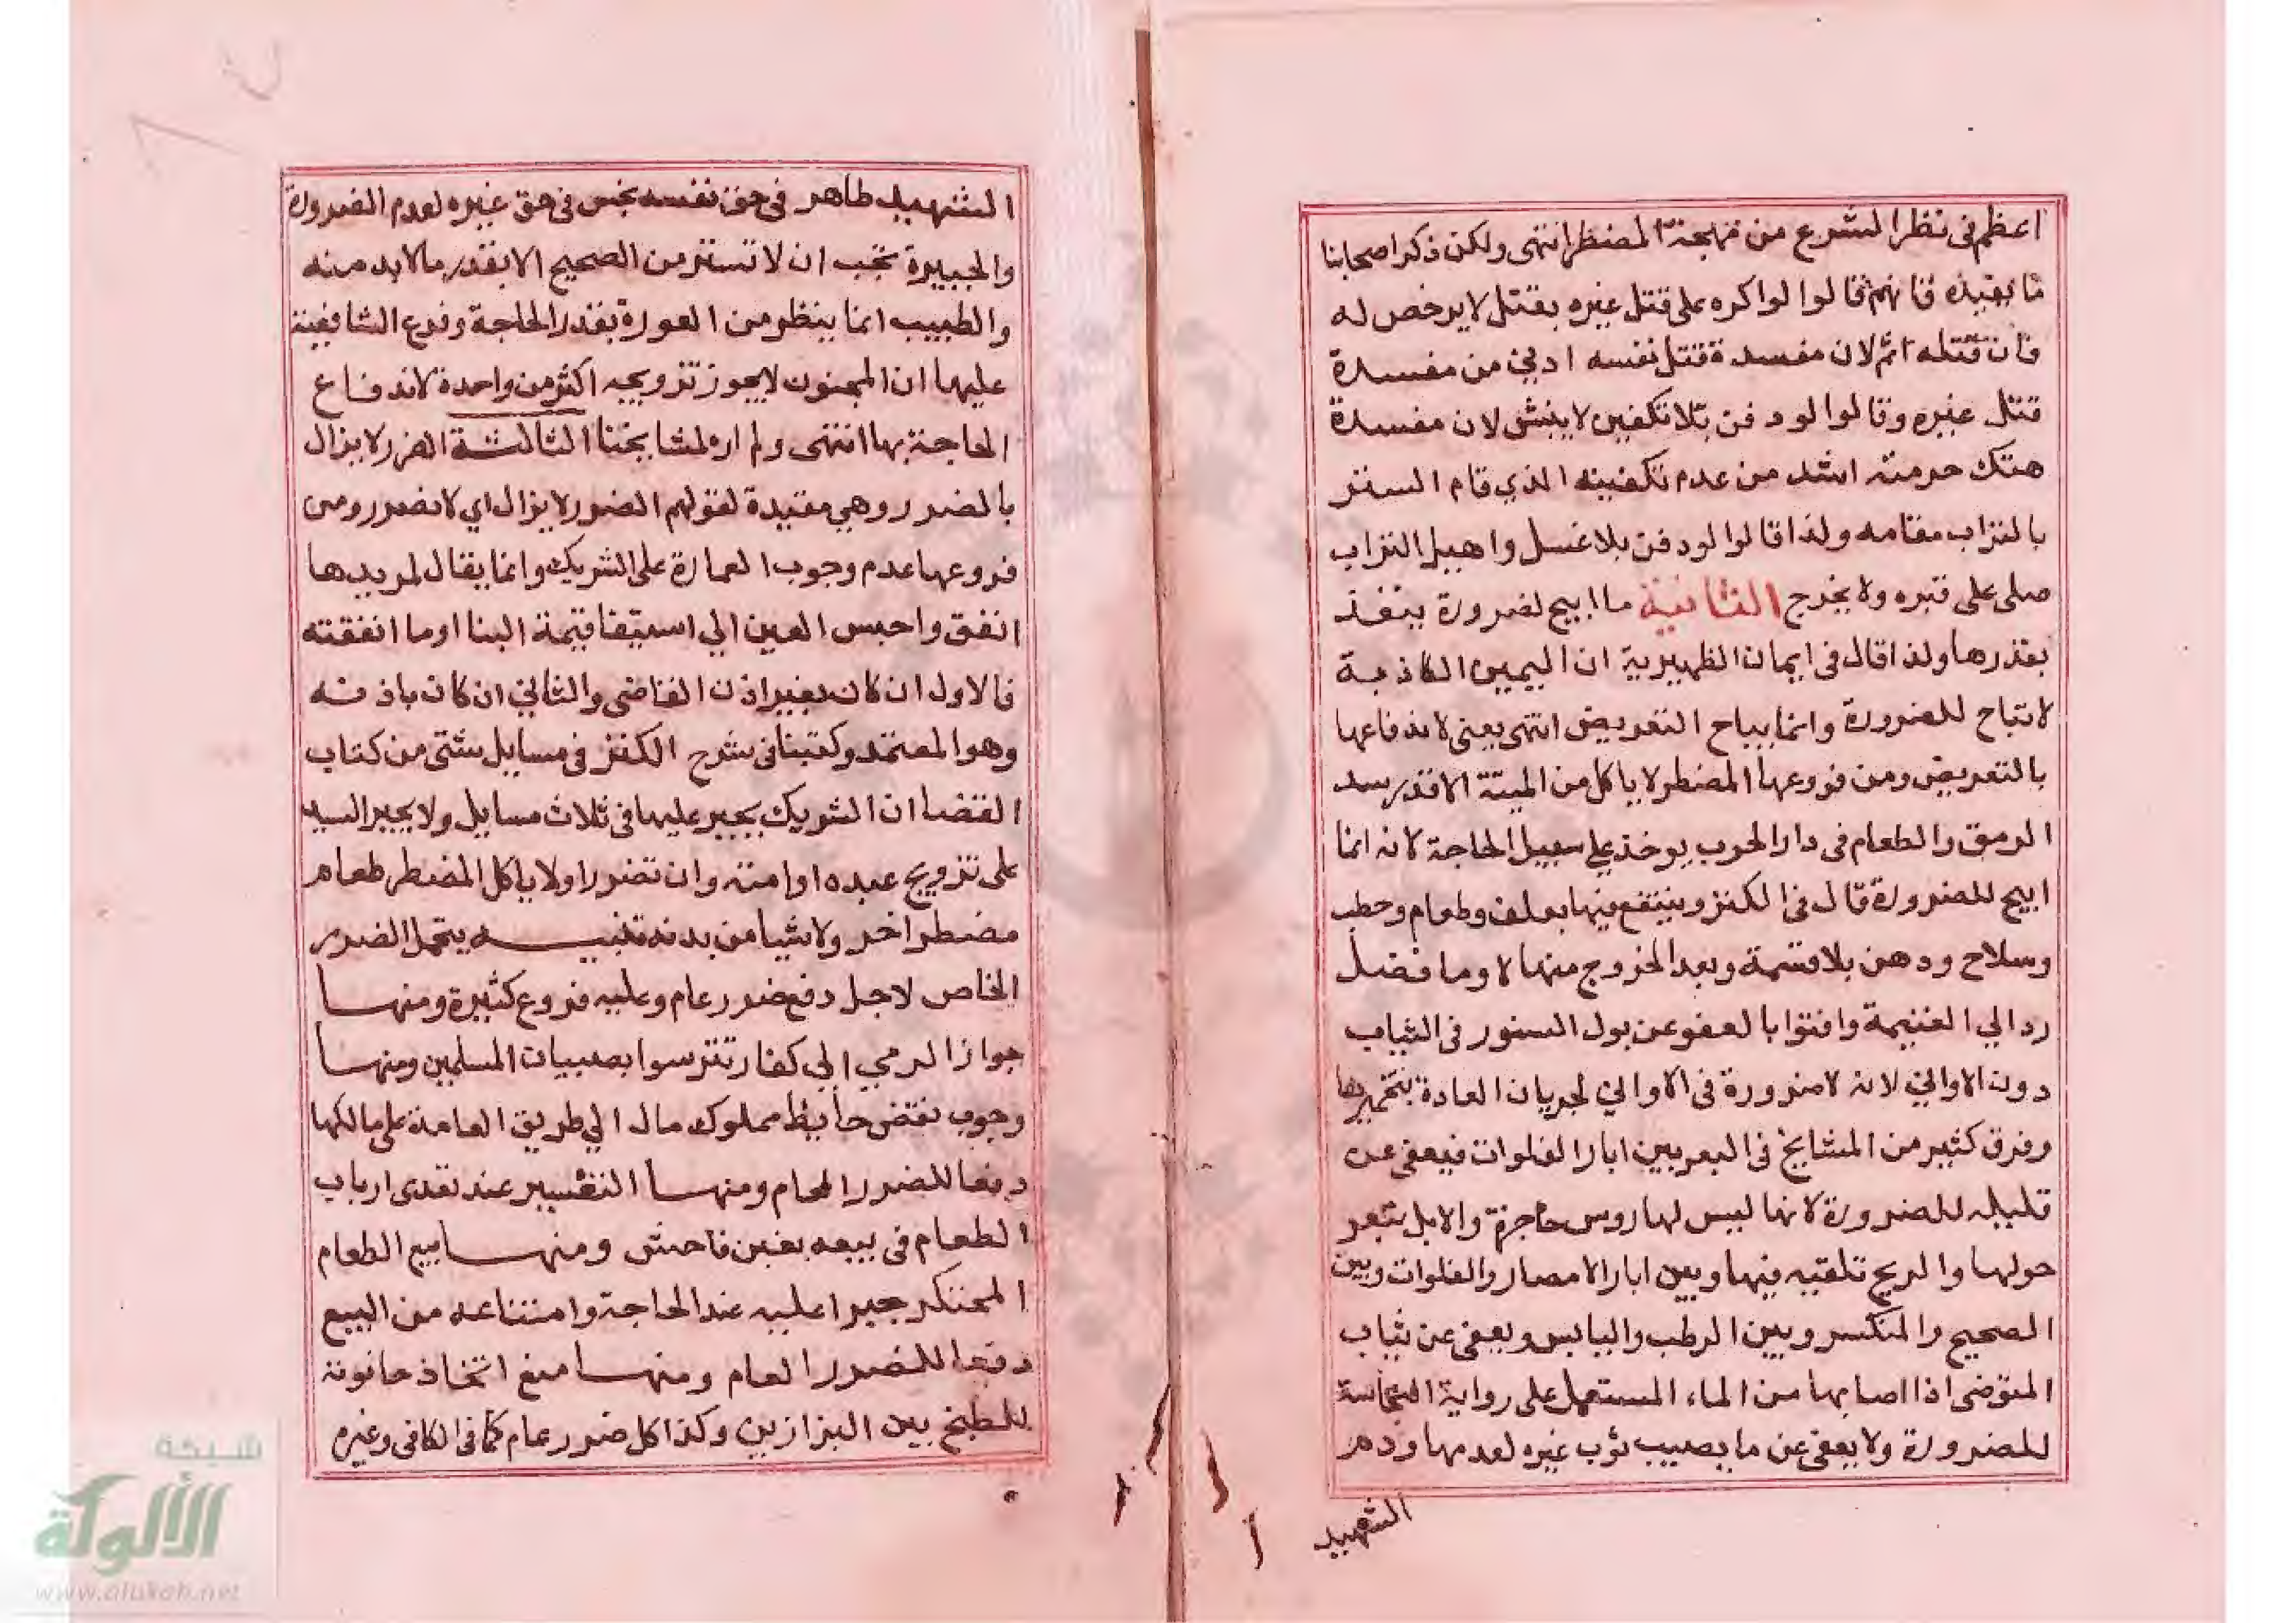 اعظم في نظر الشرع من مهجة المضطر انتهى ولكن ذكر اصحابنا
ما يفيده فانهم قالوا لو اكره على قتل غيره بقتل لا يرخص له
فان قتله اثم لان مفسدة قتل نفسه ادني من مفسدة
قتل غيره وقالوا لو دفن بلا تكفين لا ينبش لان مفسدة
هتك حرمته اشد من عدم تكفينه الذي قام الستر
بالتراب مقامه ولذا قالوا لو دفن بلا غسل واهيل التراب
صلى على قبره ولا يخرج الثانية ما ابيح لضرورة يتقدر
بقدرها ولذا قال في ايمان الظهيرية ان اليمين الكاذبة
لا تباح للضرورة وانما يباح التعريض انتهى يعني لاندفاعها
بالتعريض ومن فروعها المضطر لا ياكل من الميتة الا قدر سد
الرمق والطعام في دار الحرب يوخذ على سبيل الحاجة لانه انما
ابيح للضرورة قال في الكنز وينتفع فيها بعلف وطعام وحطب
وسلاح ودهن بلا قسمة وبعد الخروج منها لا وما فضل
رد الي الغنيمة وافتوا بالعفو عن بول السنور في الثياب
دون الاواني لانه لا ضرورة في الاواني لجريان العادة بتخميرها
وفرق كثير من المشايخ في البعر بين ابار الفلوات فيعفى عن
قليله للضرورة لانها ليس لها روس حاجزة والابل تبعر
حولها والريح تلقيه فيها وبين ابار الامصار والفلوات وبين
الصحيح والمنكسر وبين الرطب واليابس ويعفى عن ثياب
المتوضي اذا اصابها من الماء المستعمل على رواية النجاسة
للضرورة ولا يعفى عن ما يصيب ثوب غيره لعدمها ودم
الشهيد
الشهيد طاهر في حق نفسه نجس في حق غيره لعدم الضرورة
والجبيرة يجب ان لا تستر من الصحيح الا بقدر ما لا بد منه
والطبيب انما ينظر من العورة بقدر الحاجة وفرع الشافعية
عليها ان المجنون لا يجوز تزويجه اكثر من واحدة لاندفاع
الحاجة بها انتهى ولم اره لمشايخنا الثالثة الضرر لا يزال
بالضرر وهي مقيدة لقولهم الضرر لا يزال اي لا بضرر ومن
فروعها عدم وجوب العمارة على الشريك وانما يقال لمريدها
انفق واحبس العين الي استيفا قيمة البنا او ما انفقته
فالاول ان كان بغير اذن القاضي والثاني ان كان باذنه
وهو المعتمد وكتبنا في شرح الكنز في مسايل شتى من كتاب
القضا ان الشريك يجبر عليها في ثلاث مسايل ولا يجبر السيد
على تزويج عبده او امته وان تضررا ولا ياكل المضطر طعام
مضطر اخر ولا شيا من بدنه تنبيه يتحمل الضرر
الخاص لاجل دفع ضرر عام وعليه فروع كثيرة ومنها
جواز الرمي الي كفار تترسوا بصبيان المسلمين ومنها
وجوب نقض حايط مملوك مال الي طريق العامة على مالكها
دفعا للضرر العام ومنها التسعير عند تعدى ارباب
الطعام في بيعه بغبن فاحش ومنها بيع الطعام
المحتكر جبرا عليه عند الحاجة وامتناعه من البيع
دفعا للضرر العام ومنها منع اتخاذ حانوت
للطبخ بين البزازين وكذا كل ضرر عام كما في الكافي وغيره
شبكة
الألوكة
www.alukah.net